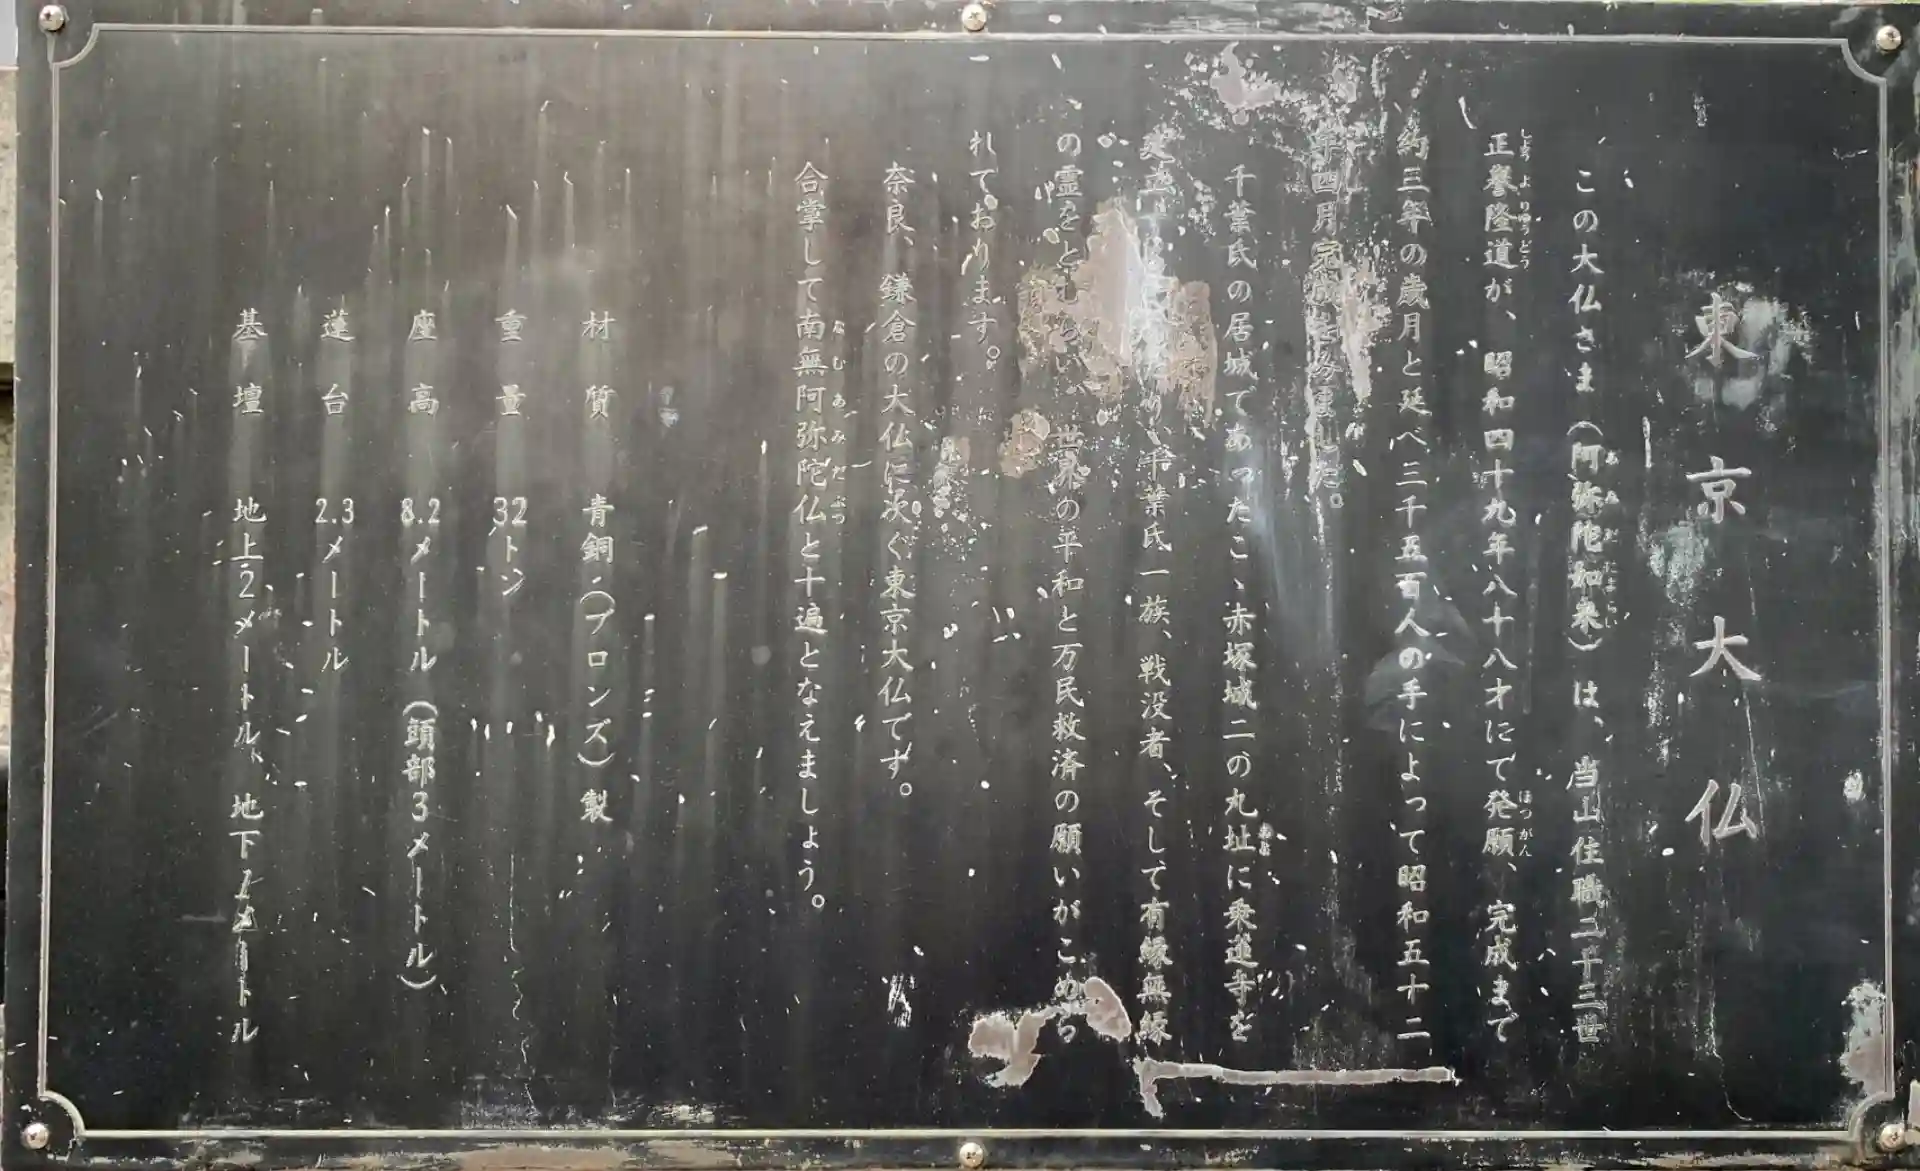 東京大仏
この大仏さま（阿弥陀如来）は、当山住職二十三世
正譽隆道が、昭和四十九年八十八才にて発願、完成まで
約三年の歳月と延べ三千五百人の手によって昭和五十二
年四月完成しました。
千葉氏の居城であったこゝ赤塚城二の丸址に乗蓮寺を
建立 千葉氏一族、戦没者、そして有縁無縁
の霊をとむらい、世界の平和と万民救済の願いがこめら
れております。
奈良、鎌倉の大仏に次ぐ東京大仏です。
合掌して南無阿弥陀仏と十遍となえましょう。
材質 青銅（ブロンズ）製
重量 32トン
座高 8.2メートル（頭部3メートル）
蓮台 2.3メートル
基壇 地上2メートル、地下メートル